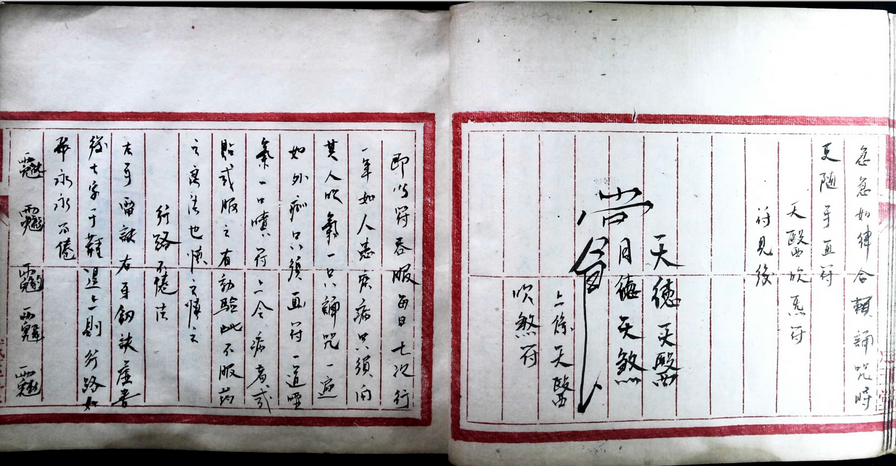 急急如律令 誦咒時
更隨手画符
天醫吹炁符
符見後
天德天醫
月德天煞
上條天醫
吹煞符
即以符吞服每日七次行
一年如人患疾病只須向
其人吹氣一口誦咒一遍
如外科只須画符一道
氣一口噴符上令病者或
貼或服之有効驗此不服药
之良法也慎之慎之
行路不倦法
左手雷訣右手劍訣虛書
後七字于鞋邊上則行路如
飛永永不倦